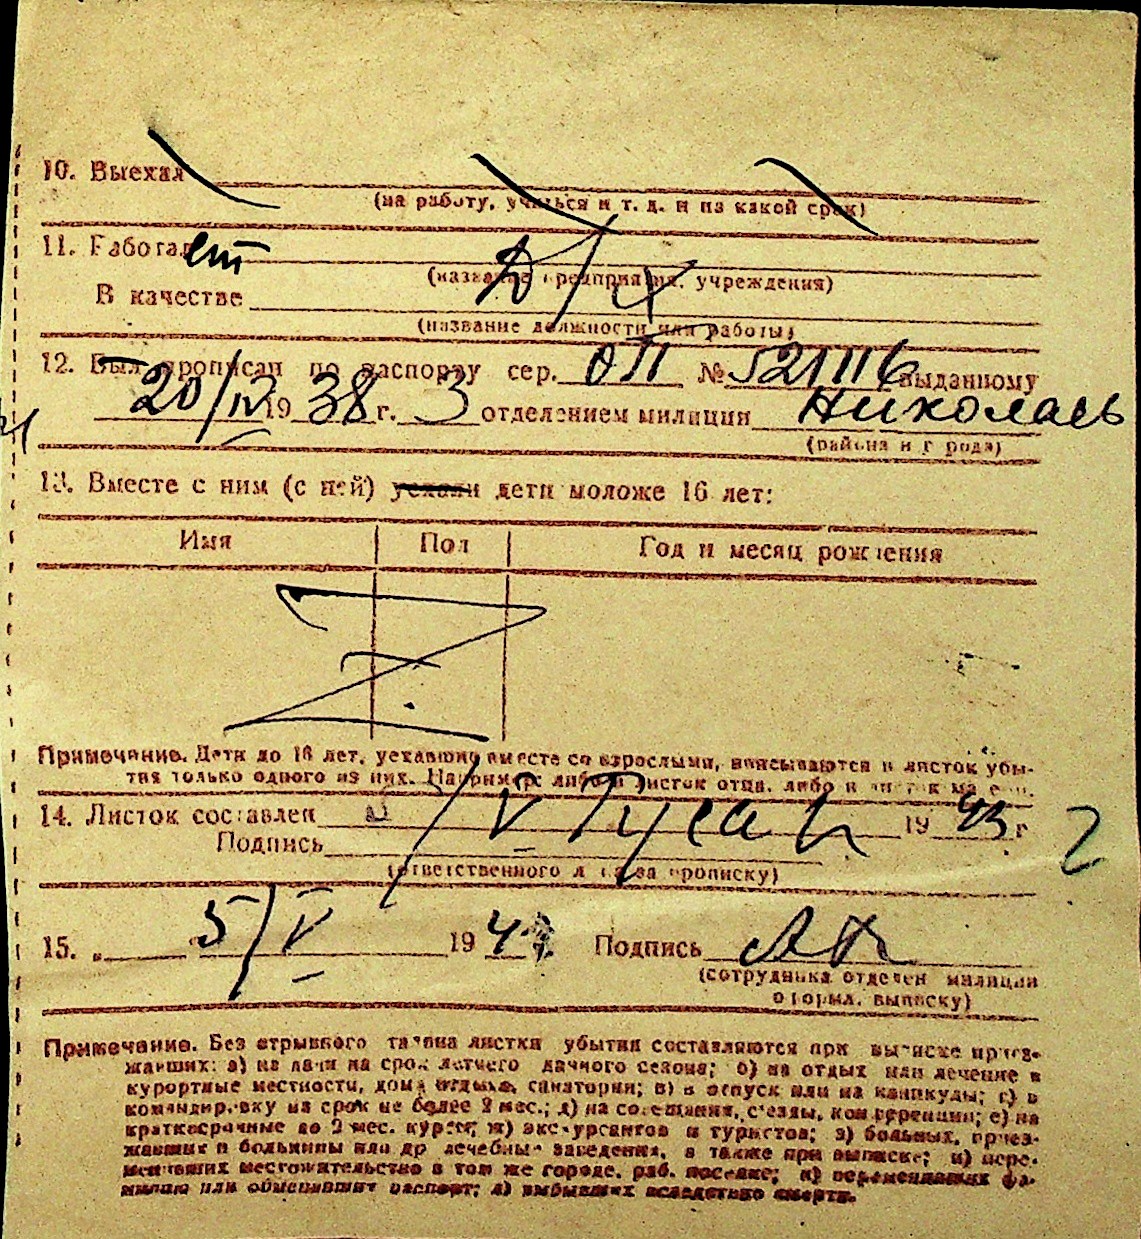 10. Выехал
(на работу, учиться и т. д. и на какой срок)
11. Работает
Д/Х
(название предприятия, учреждения)
В качестве
(название должности или работы)
12. Был прописан по паспорту сер. ОП № 521116 выданному
20/IV 1938 г. 3 отделением милиции Николаев
(района и города)
13. Вместе с ним (с ней) уехали дети моложе 16 лет:
Имя Пол Год и месяц рождения
Z
Примечание. Дети до 16 лет, уехавшие вместе со взрослыми, вписываются в листок убы-
тия только одного из них. Например: либо в листок отца, либо в листок матери.
14. Листок составлен /V 1943 г
Подпись
(ответственного лица за прописку)
15. „ 5/V 194 Подпись
(сотрудника отделен милиции
оформл. выписку)
Примечание. Без отрывного талона листки убытия составляются при выписке приез-
жавших: а) на дачи на срок летнего дачного сезона; б) на отдых или лечение в
курортные местности, дома отдыха, санатории; в) в отпуск или на каникулы; г) в
командировку на срок не более 2 мес.; д) на совещания, съезды, конференции; е) на
краткосрочные до 2 мес. курсы; ж) экскурсантов и туристов; з) больных, приез-
жавших в больницы или др лечебные заведения, а также при выписке; и) пере-
менивших местожительство в том же городе, раб. поселке; к) переменивших фа-
милию или обменивших паспорт; л) выбывших вследствие смерти.